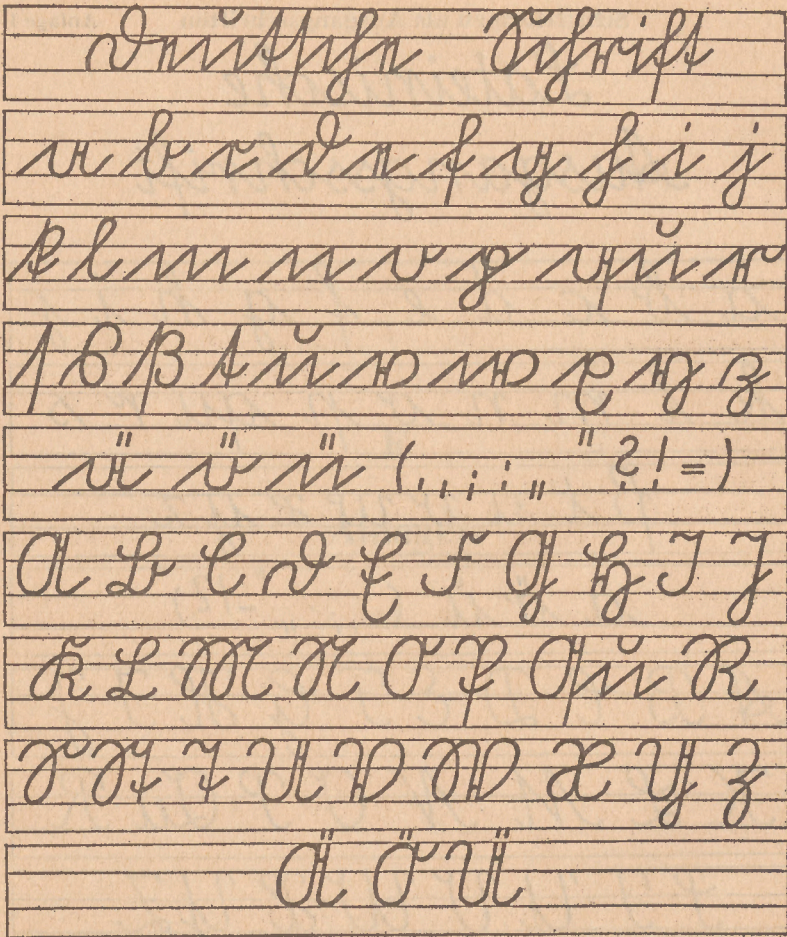 Deutſche Schrift
a b c d e f g h i j
k l m n o p qu r
ſ s ß t u v w x y z
ä ö ü (. , ; : „ " ? ! = )
A B C D E F G H I J
K L M N O P Qu R
S St T U V W X Y Z
Ä Ö Ü